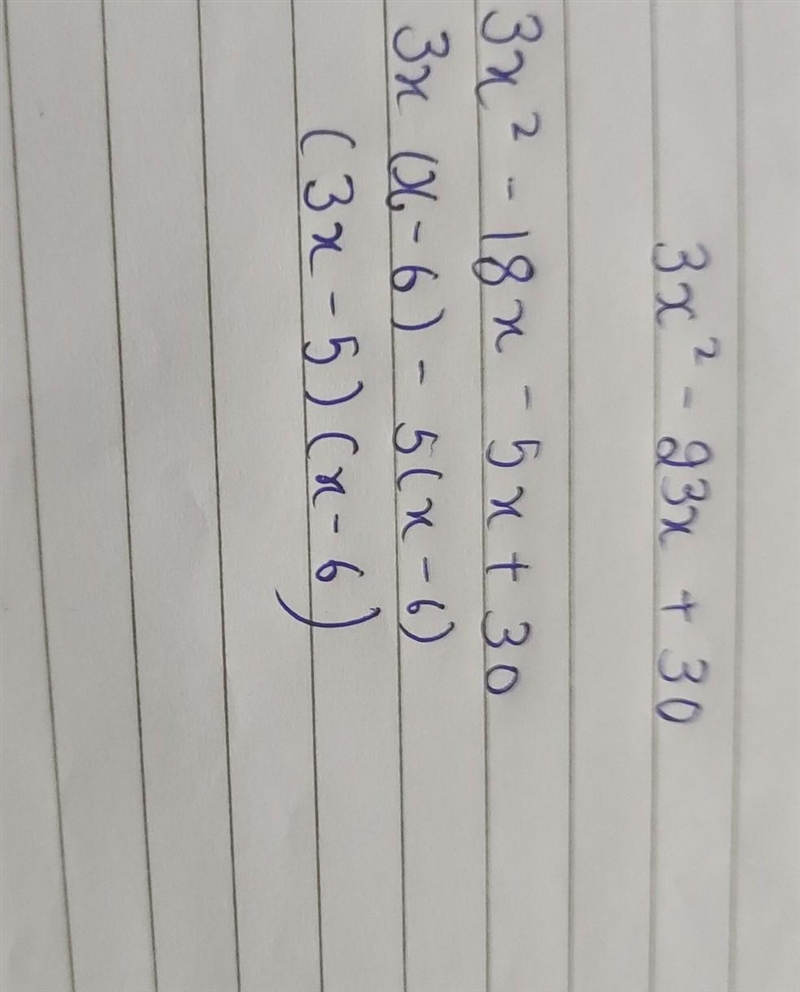 3x² - 23x + 30
3x² - 18x - 5x + 30
3x (x - 6) - 5(x - 6)
(3x - 5) (x - 6)